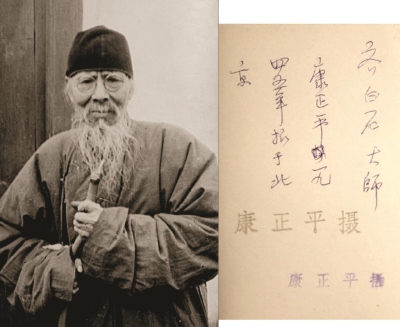 齐白石大師
康正平一九
四五年摄于北
京
康正平摄
康正平摄